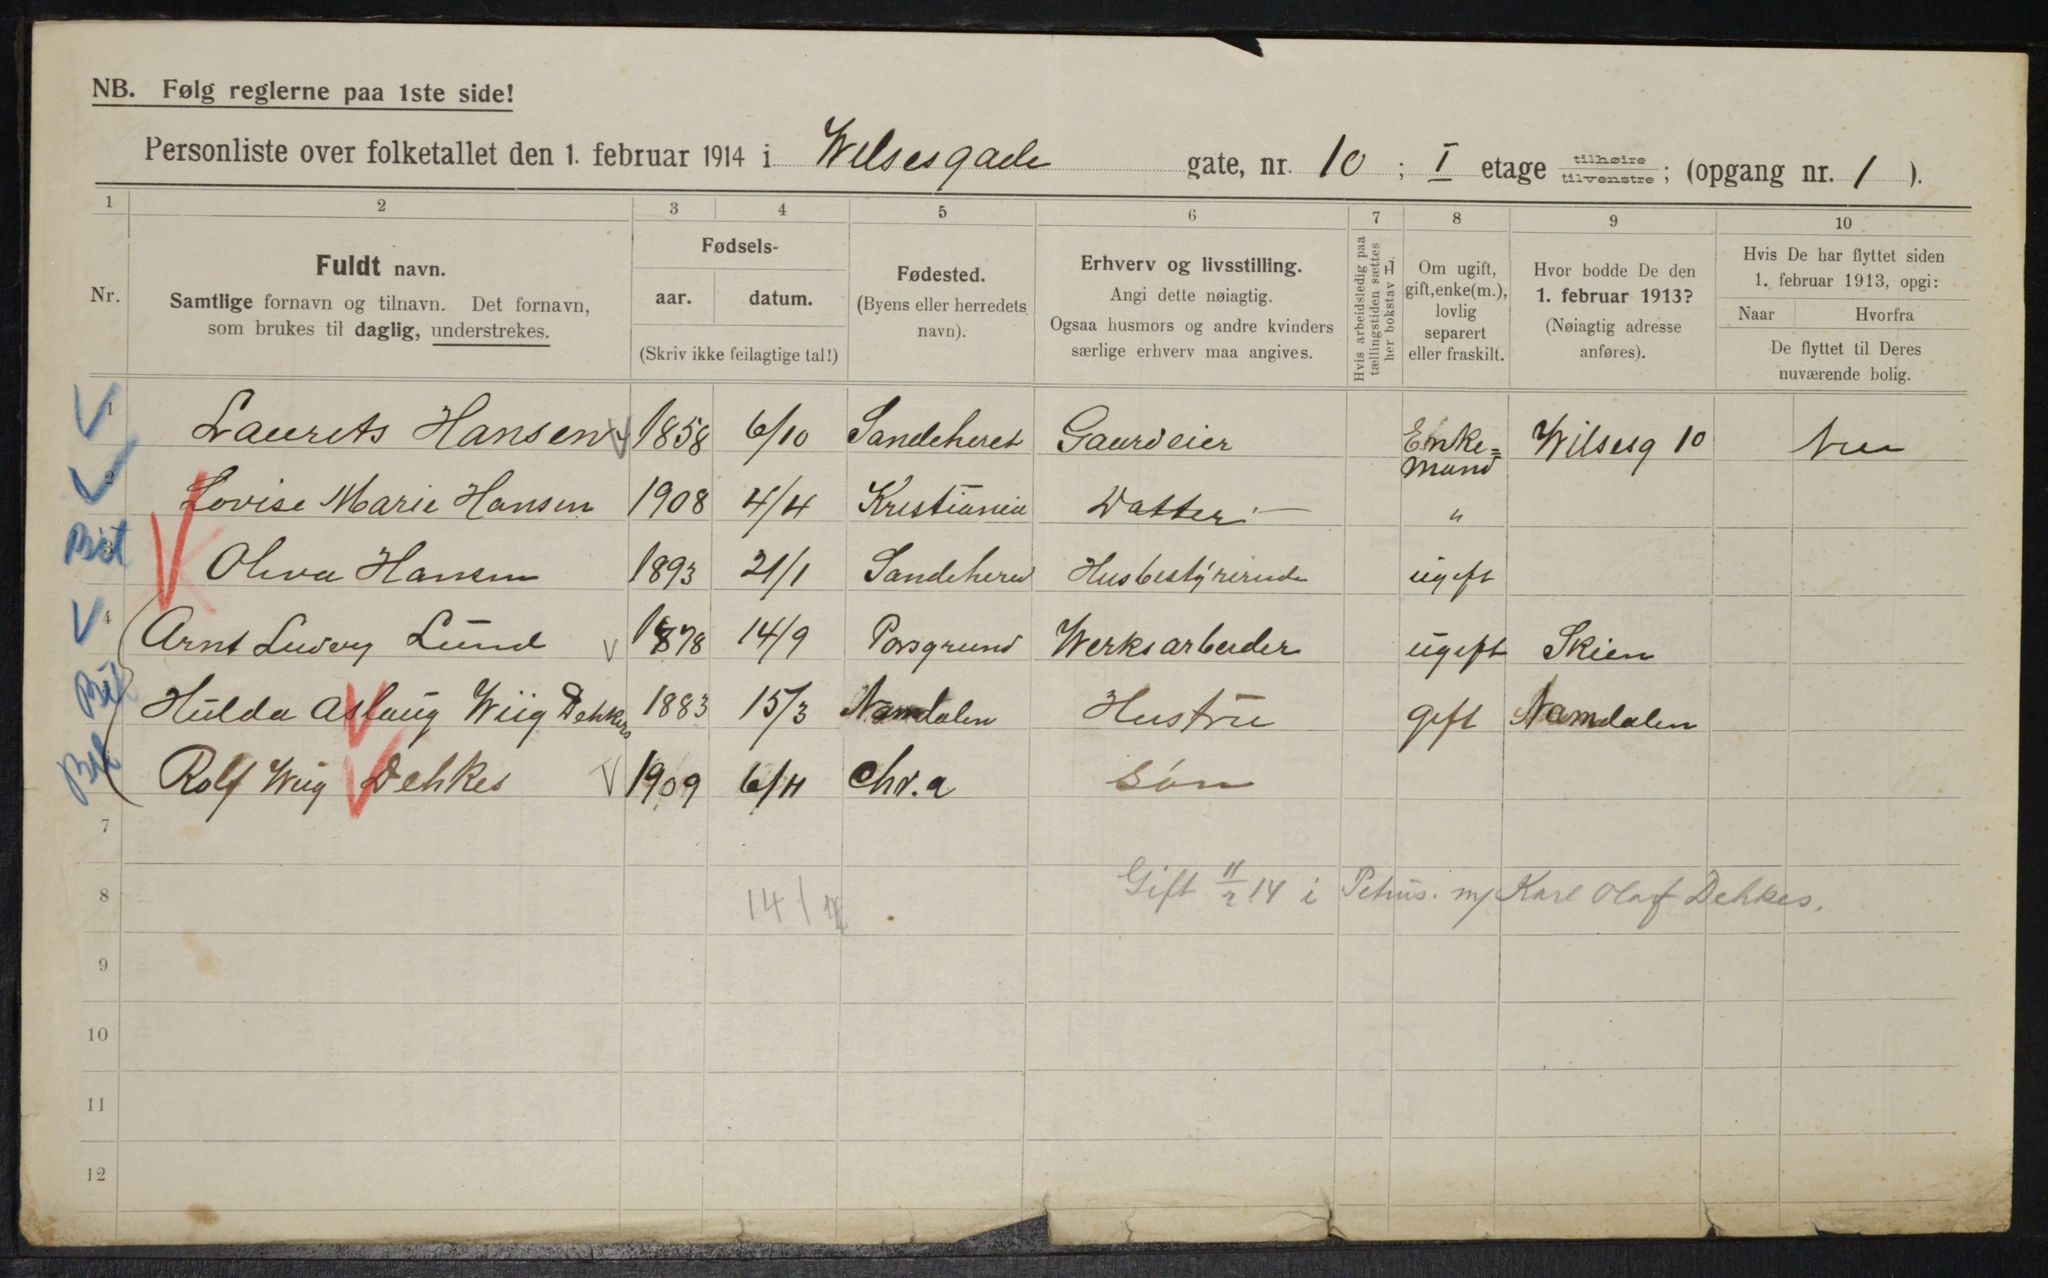 NB. Følg reglerne paa 1ste side!
Personliste over folketallet den 1. februar 1914 i Wilsesgade gate, nr. 10 ; I etage tilhøire tilvenstre ; (opgang nr. 1 ).
1 2 3 4 5 6 7 8 9 10
Nr.
Fuldt navn.
Samtlige fornavn og tilnavn. Det fornavn,
som brukes til daglig, understrekes.
Fødsels-
aar. datum.
(Skriv ikke feilagtige tal!)
Fødested.
(Byens eller herredets
navn).
Erhverv og livsstilling.
Angi dette nøiagtig.
Ogsaa husmors og andre kvinders
særlige erhverv maa angives.
Hvis arbeidsledig paa
tællingstiden sættes
her bokstav L.
Om ugift,
gift, enke(m.),
lovlig
separert
eller fraskilt.
Hvor bodde De den
1. februar 1913?
(Nøiagtig adresse
anføres).
Hvis De har flyttet siden
1. februar 1913, opgi:
Naar Hvorfra
De flyttet til Deres
nuværende bolig.
1 Laurets Hansen 1858 6/10 Sandeheret Gaardeier Enke=
mand Wilsesg 10
2 Lovise Marie Hansen 1908 4/4 Kristiania Datter "
3 Oliva Hansen 1893 21/1 Sandehered Husbestÿrerinde ugift
4 Arnt Ludvig Lund 1878 14/9 Porsgrund Werksarbeider ugift Skien
Hulda Aslaug Wiig Dehkes 1883 15/3 Namdalen Hustru gift Namdalen
Rolf Wiig Dehkes 1909 6/11 Chr.a Søn
7
8 14/ Gift 11/2 14 i Petrus. m/ Karl Olaf Dehkes.
9
10
11
12